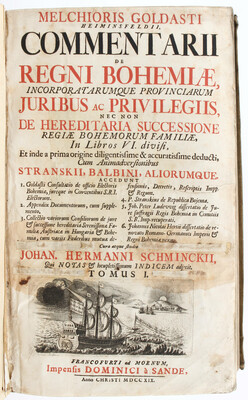 MELCHIORIS GOLDASTI
HEIMINSFELDII,
COMMENTARII
DE
REGNI BOHEMIÆ,
INCORPORATARUMQUE PROVINCIARUM
JURIBUS AC PRIVILEGIIS,
NEC NON
DE HEREDITARIA SUCCESSIONE
REGIÆ BOHEMORUM FAMILIÆ,
In Libros VI. divisi,
Et inde a prima origine diligentissime & accuratissime deducti,
Cum Animadversionibus
STRANSKII, BALBINI, ALIORUMQUE.
ACCEDUNT
1. Goldasti Consultatio de officio Electoris
Bohemiæ, jureque in Conventibus S.R.I.
Electorum.
2. Appendix Documentorum, cum
3. Collectio variorum Consiliorum de jure
& successione hereditaria Serenissimæ
Austriacæ in Hungariæ & Bohemia
4. P. Stranskius de Republica Bojema.
5. Joh. Peter Ludewig dissertatio de
suffragii Regis Bohemiæ in Comitiis
S.R. Imp.
6. Johannis Nicolai Hertii dissertatio de
Romano-Germanici Imperii &
Regni Bohemiæ nexu.
JOHAN. HERMANNI SCHMINCKII,
Qui NOTAS & INDICEM adjecit.
TOMUS I.
FRANCOFURTI ad MOENUM,
Impensis DOMINICI à SANDE,
Anno CHRISTI MDCCXIX.